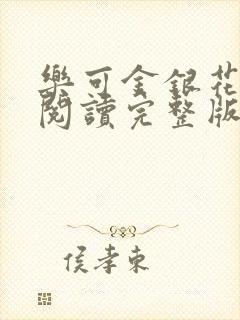 樂可金銀花
閱讀完整版
侯孝東